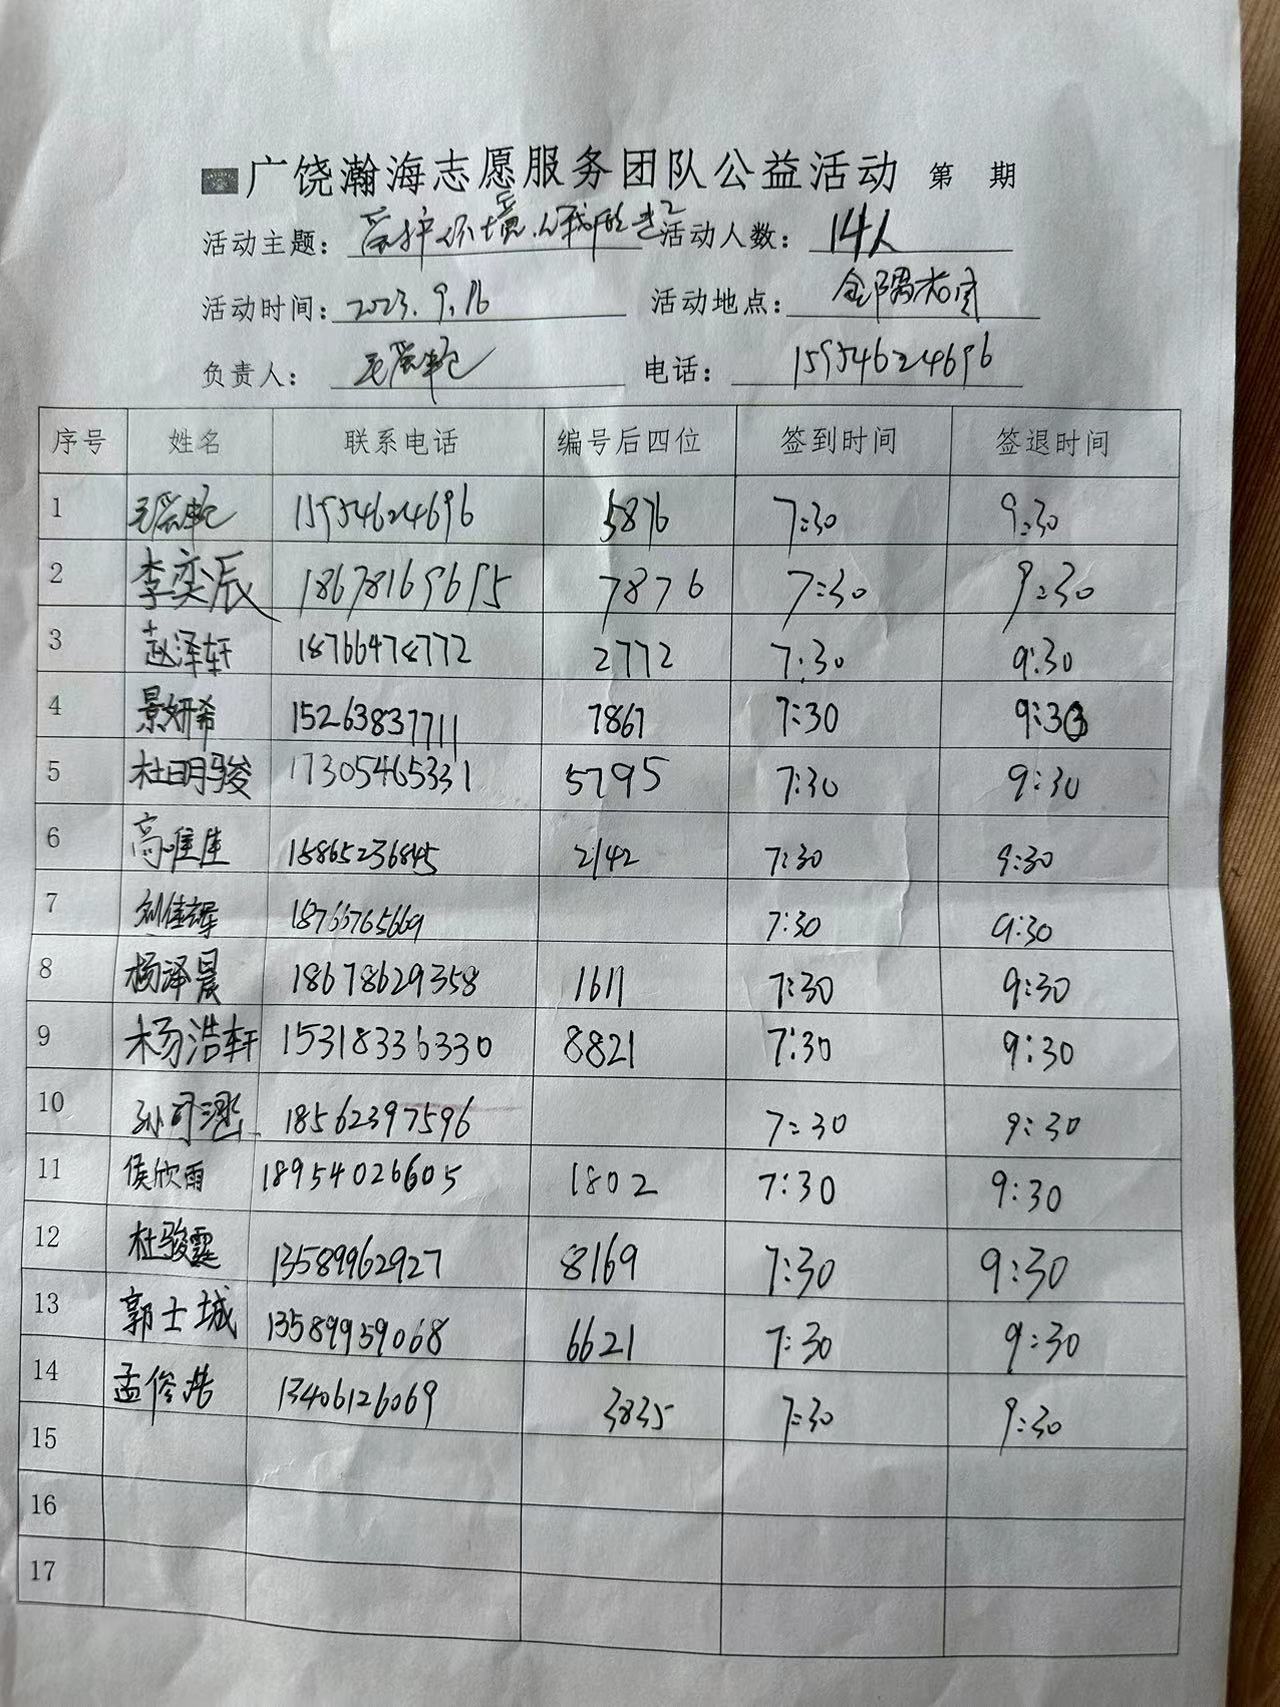 广饶瀚海志愿服务团队公益活动 第 期
活动主题: 爱护环境从我做起 活动人数: 14人
活动时间: 2023.9.16 活动地点:
负责人: 电话: 15954624696
序号 姓名 联系电话 编号后四位 签到时间 签退时间
1 15954624696 5876 7:30 9:30
2 李奕辰 18678169695 7876 7:30 9:30
3 赵泽轩 18766478772 2772 7:30 9:30
4 景妍希 15263837711 7867 7:30 9:30
5 杜明骏 17305465331 5795 7:30 9:30
6 高唯佳 15865236845 2142 7:30 9:30
7 刘佳辉 18766765669 7:30 9:30
8 杨泽晨 18678629358 1611 7:30 9:30
9 杨浩轩 15318336330 8821 7:30 9:30
10 孙可涵 18562397596 7:30 9:30
11 侯欣雨 18954026605 1802 7:30 9:30
12 杜骏霆 13589962927 8169 7:30 9:30
13 郭士城 13589959068 6621 7:30 9:30
14 孟俊浩 13406126069 3835 7:30 9:30
15
16
17